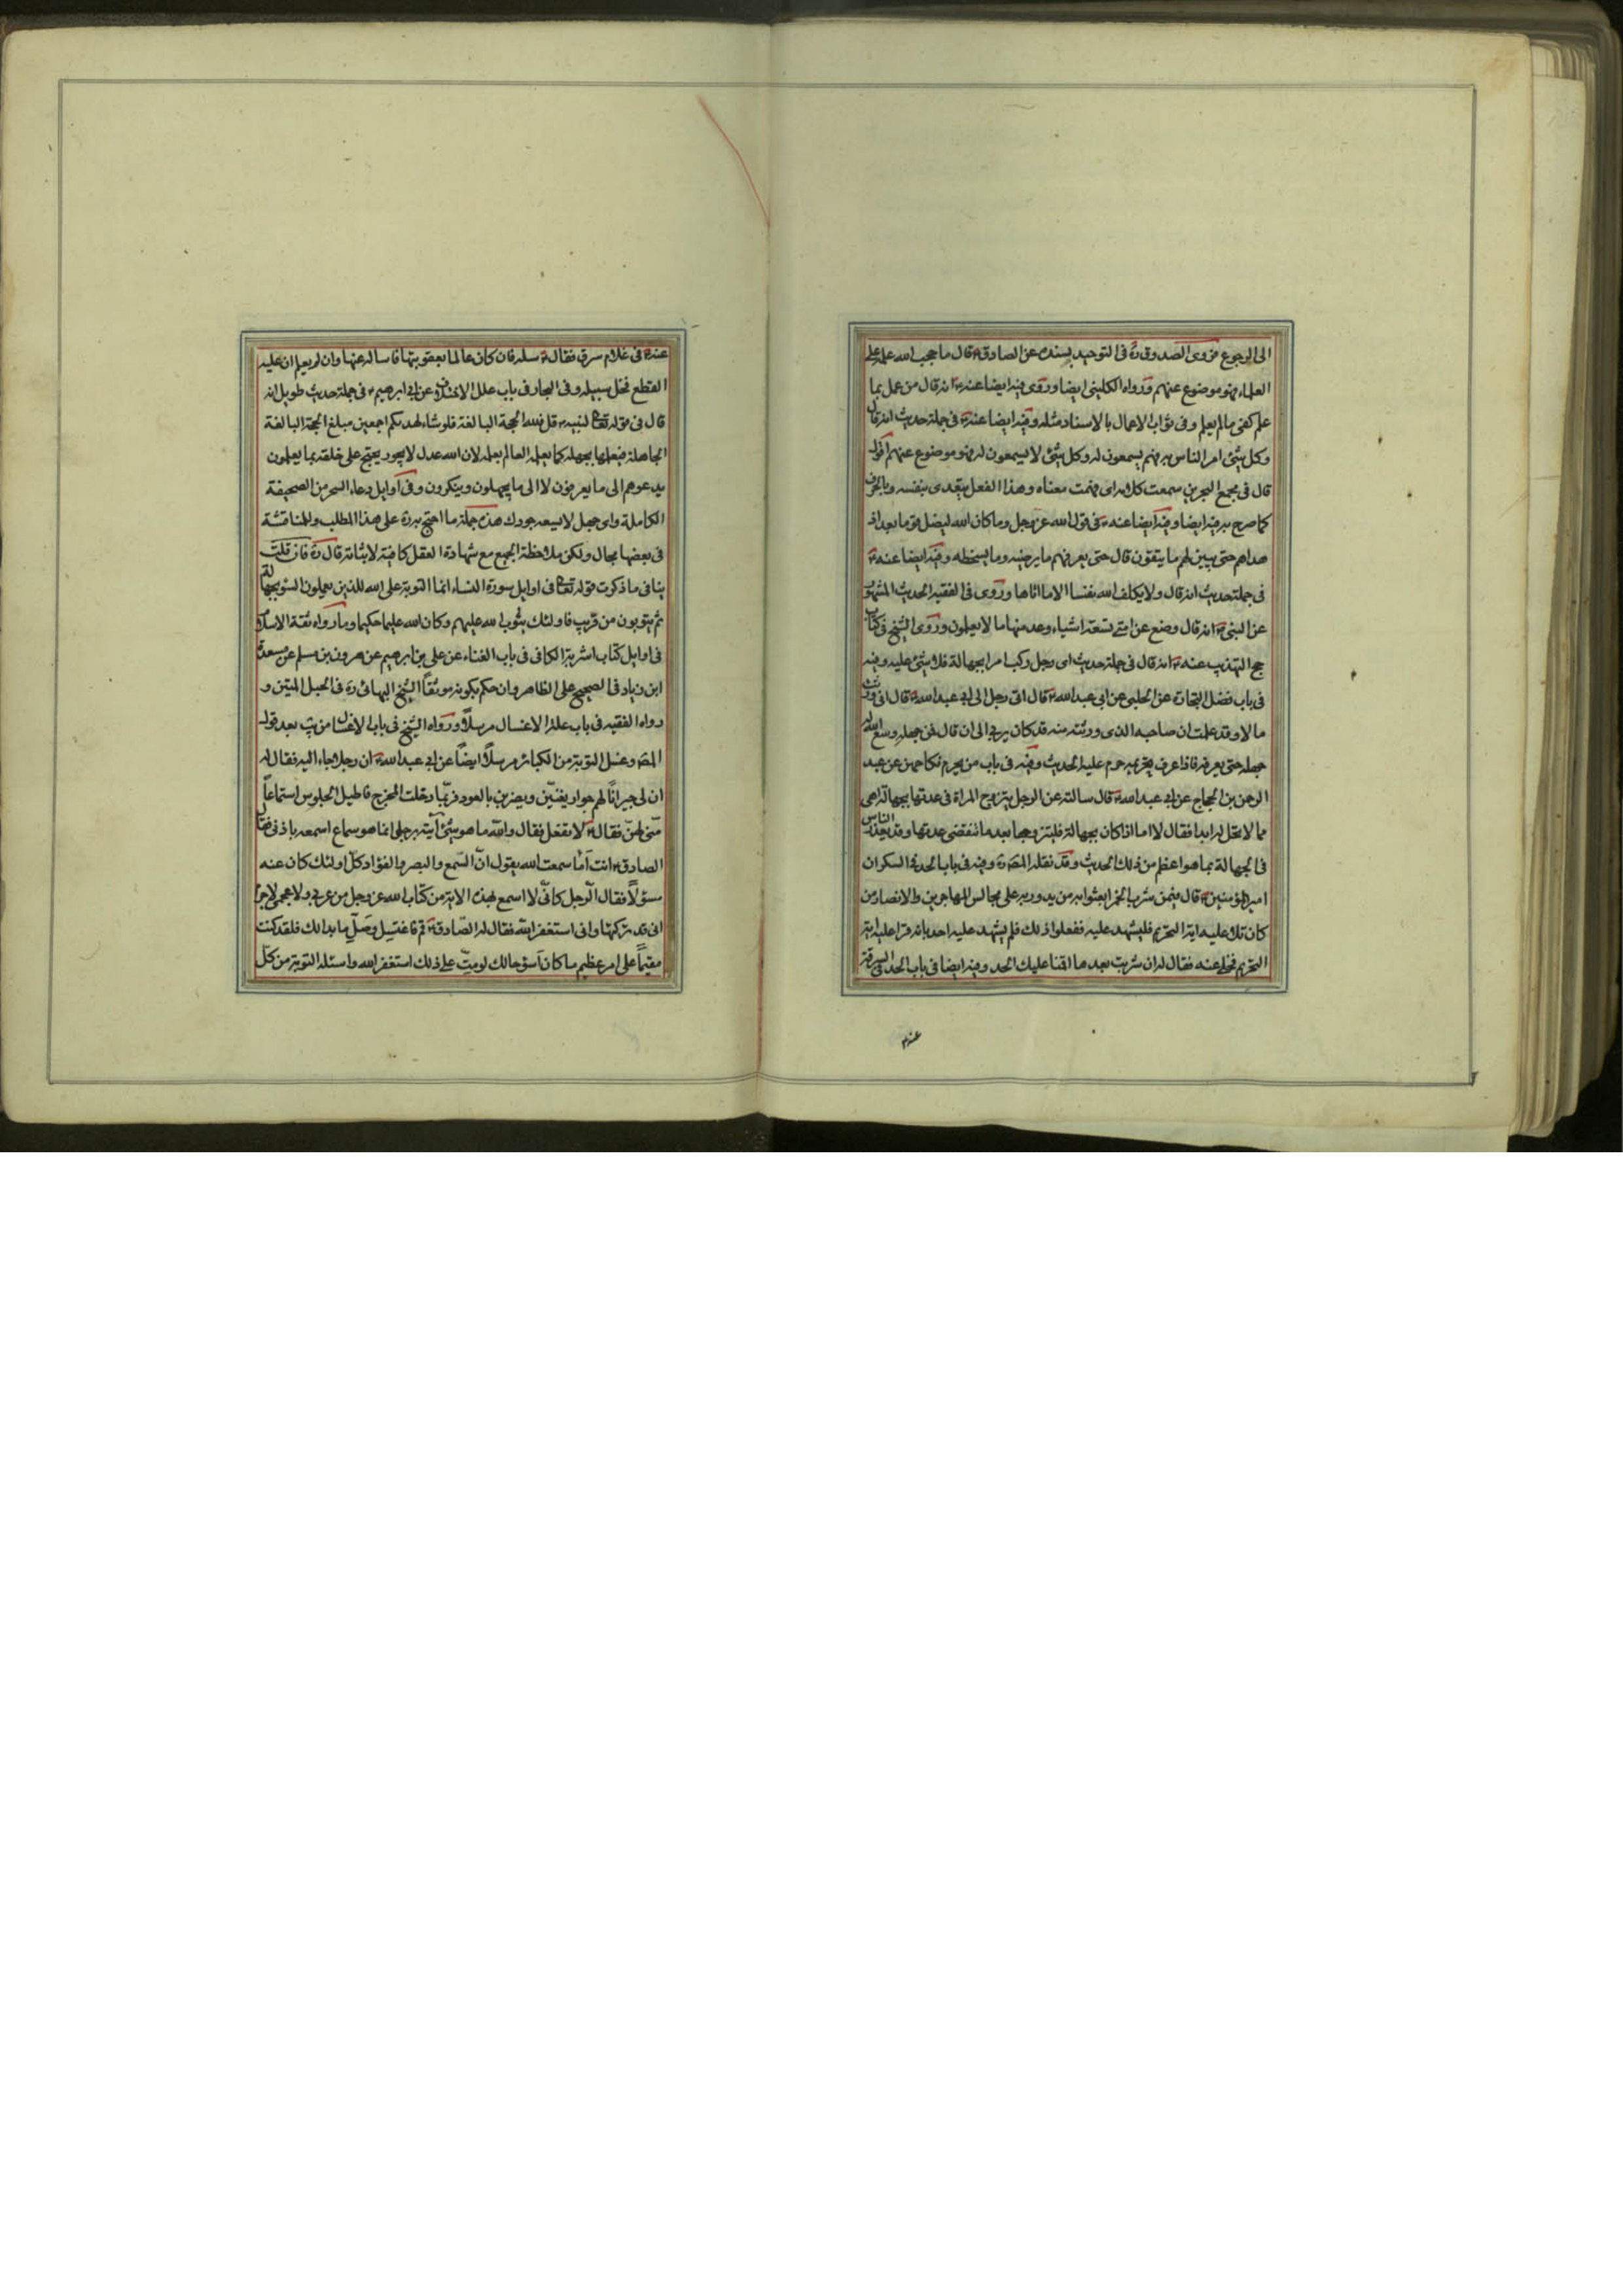 الى الرجوع فروى الصدوق ره فى التوحيد بسنده عن الصادق ع قال ما حجب الله علمه على
العلماء فهو موضوع عنهم ورواه الكلينى ايضا وروى فيه ايضا عنه ع انه قال من عمل بما
علم كفى ما لم يعلم وفى ثواب الاعمال بالاسناد مثله وفيه ايضا عنه ع فى جملة حديث انه قال
وكل شئ امر الناس به فهم يسمعون له وكل شئ لا يسمعون له فهو موضوع عنهم اقول
قال فى مجمع البحرين سمعت كلامه اى فهمت معناه وهذا الفعل يتعدى بنفسه وبالحرف
كما صرح به فيه ايضا وفيه ايضا عنه ع فى قول الله عز وجل وما كان الله ليضل قوما بعد اذ
هداهم حتى يبين لهم ما يتقون قال حتى يعرفهم ما يرضيه وما يسخطه وفيه ايضا عنه ع
فى جملة حديث انه قال ولا يكلف الله نفسا الا ما اتاها وروى فى الفقيه الحديث المشهور
عن النبى ص انه قال وضع عن امتى تسعة اشياء وعد منها ما لا يعلمون وروى الشيخ فى كتاب
حج التهذيب عنه ع انه قال فى جملة حديث اى رجل ركب امرا بجهالة فلا شئ عليه وفيه
فى باب فضل التجارة عن الحلبى عن ابى عبد الله ع قال اتى رجل الى ابى عبد الله ع قال انى ورثت
مالا وقد علمت ان صاحبه الذى ورثته منه قد كان يربى الى ان قال فمن جهله وسع الله له
جهله حتى يعرفه فاذا عرف تحريمه حرم عليه الحديث وفيه فى باب من يحرم نكاحهن عن عبد
الرحمن بن الحجاج عن ابى عبد الله ع قال سالته عن الرجل يتزوج المراة فى عدتها بجهالة اهى
مما لا تحل له ابدا فقال لا اما اذا كان بجهالة فليتزوجها بعد ما تنقضى عدتها وقد يعذر الناس
فى الجهالة بما هو اعظم من ذلك الحديث وقد نقله المصَ ره وفيه فى باب الحد فى السكران
امير المؤمنين ع قال فيمن شرب الخمر ابعثوا به من يدور به على مجالس المهاجرين والانصار من
كان تلا عليه اية التحريم فليشهد عليه ففعلوا ذلك فلم يشهد عليه احد بانه قرا عليه اية
التحريم فخلى عنه فقال له ان شربت بعدها اقمنا عليك الحد وفيه ايضا فى باب الحد فى السرقة
عنه ع
عنه ع فى غلام سرق فقال ع سله فان كان عالما بعقوبتها فاساله عنها وان لم يعلم ان عليه
القطع فخل سبيله وفى البحار فى باب علل الاختلاف عن ابى ابرهيم ع فى جملة حديث طويل انه
قال فى قوله تعالى لنبيه ص قل فلله الحجة البالغة فلو شاء لهديكم اجمعين مبلغ الحجة البالغة
الجاهل فيعلمها بجهله كما يعلمه العالم بعلمه لان الله عدل لا يجور يحتج على خلقه بما يعلمون
يدعوهم الى ما يعرفون لا الى ما يجهلون وينكرون وفى اوايل دعاء السحر من الصحيفة
الكاملة واى جهل لا يسعه جودك هذه جملة ما احتج به ره على هذا المطلب والمناقشة
فى بعضها مجال ولكن ملاحظة الجميع مع شهادة العقل كافية لاثباته قال ره فان قلت
ينافى ما ذكرت قوله تعالى فى اوايل سورة النساء انما التوبة على الله للذين يعملون السوء بجهالة
ثم يتوبون من قريب فاولئك يتوب الله عليهم وكان الله عليما حكيما وما رواه ثقة الاسلام
فى اوايل كتاب اشربة الكافى فى باب الغناء عن على بن ابرهيم عن هرون بن مسلم عن مسعدة
ابن زياد فى الصحيح على الظاهر وان حكم بكونه موثقاً الشيخ البهائى ره فى الحبل المتين و
رواه الفقيه فى باب علة الاغسال مرسلاً ورواه الشيخ فى باب الاغسال من يب بعد قول
المصَ وغسل التوبة من الكبائر مرسلاً ايضاً عن ابى عبد الله ع ان رجلا جاء اليه فقال له
ان لى جيراناً لهم جوار يغنّين ويضربن بالعود فربّما دخلت المخرج فاطيل الجلوس استماعاً
منّى لهنّ فقال ع لا تفعل فقال والله ما هو شئ آتيه برجلى انما هو سماع اسمعه باذنى فقال
الصادق ع انت اَما سمعت الله يقول انّ السّمع والبصر والفؤاد كلّ اولئك كان عنه
مسؤلاً فقال الرّجل كانّى لا اسمع لهذه الاية من كتاب الله عز وجل من عربى ولا عجمى لا جرم
انى قد تركتها وانى استغفر الله فقال له الصّادق ع قم فاغتسل وصلّ ما بدا لك فلقد كنت
مقيماً على امر عظيم ما كان اَسوَ حالك لو متّ على ذلك استغفر الله واسئله التوبة من كلّ